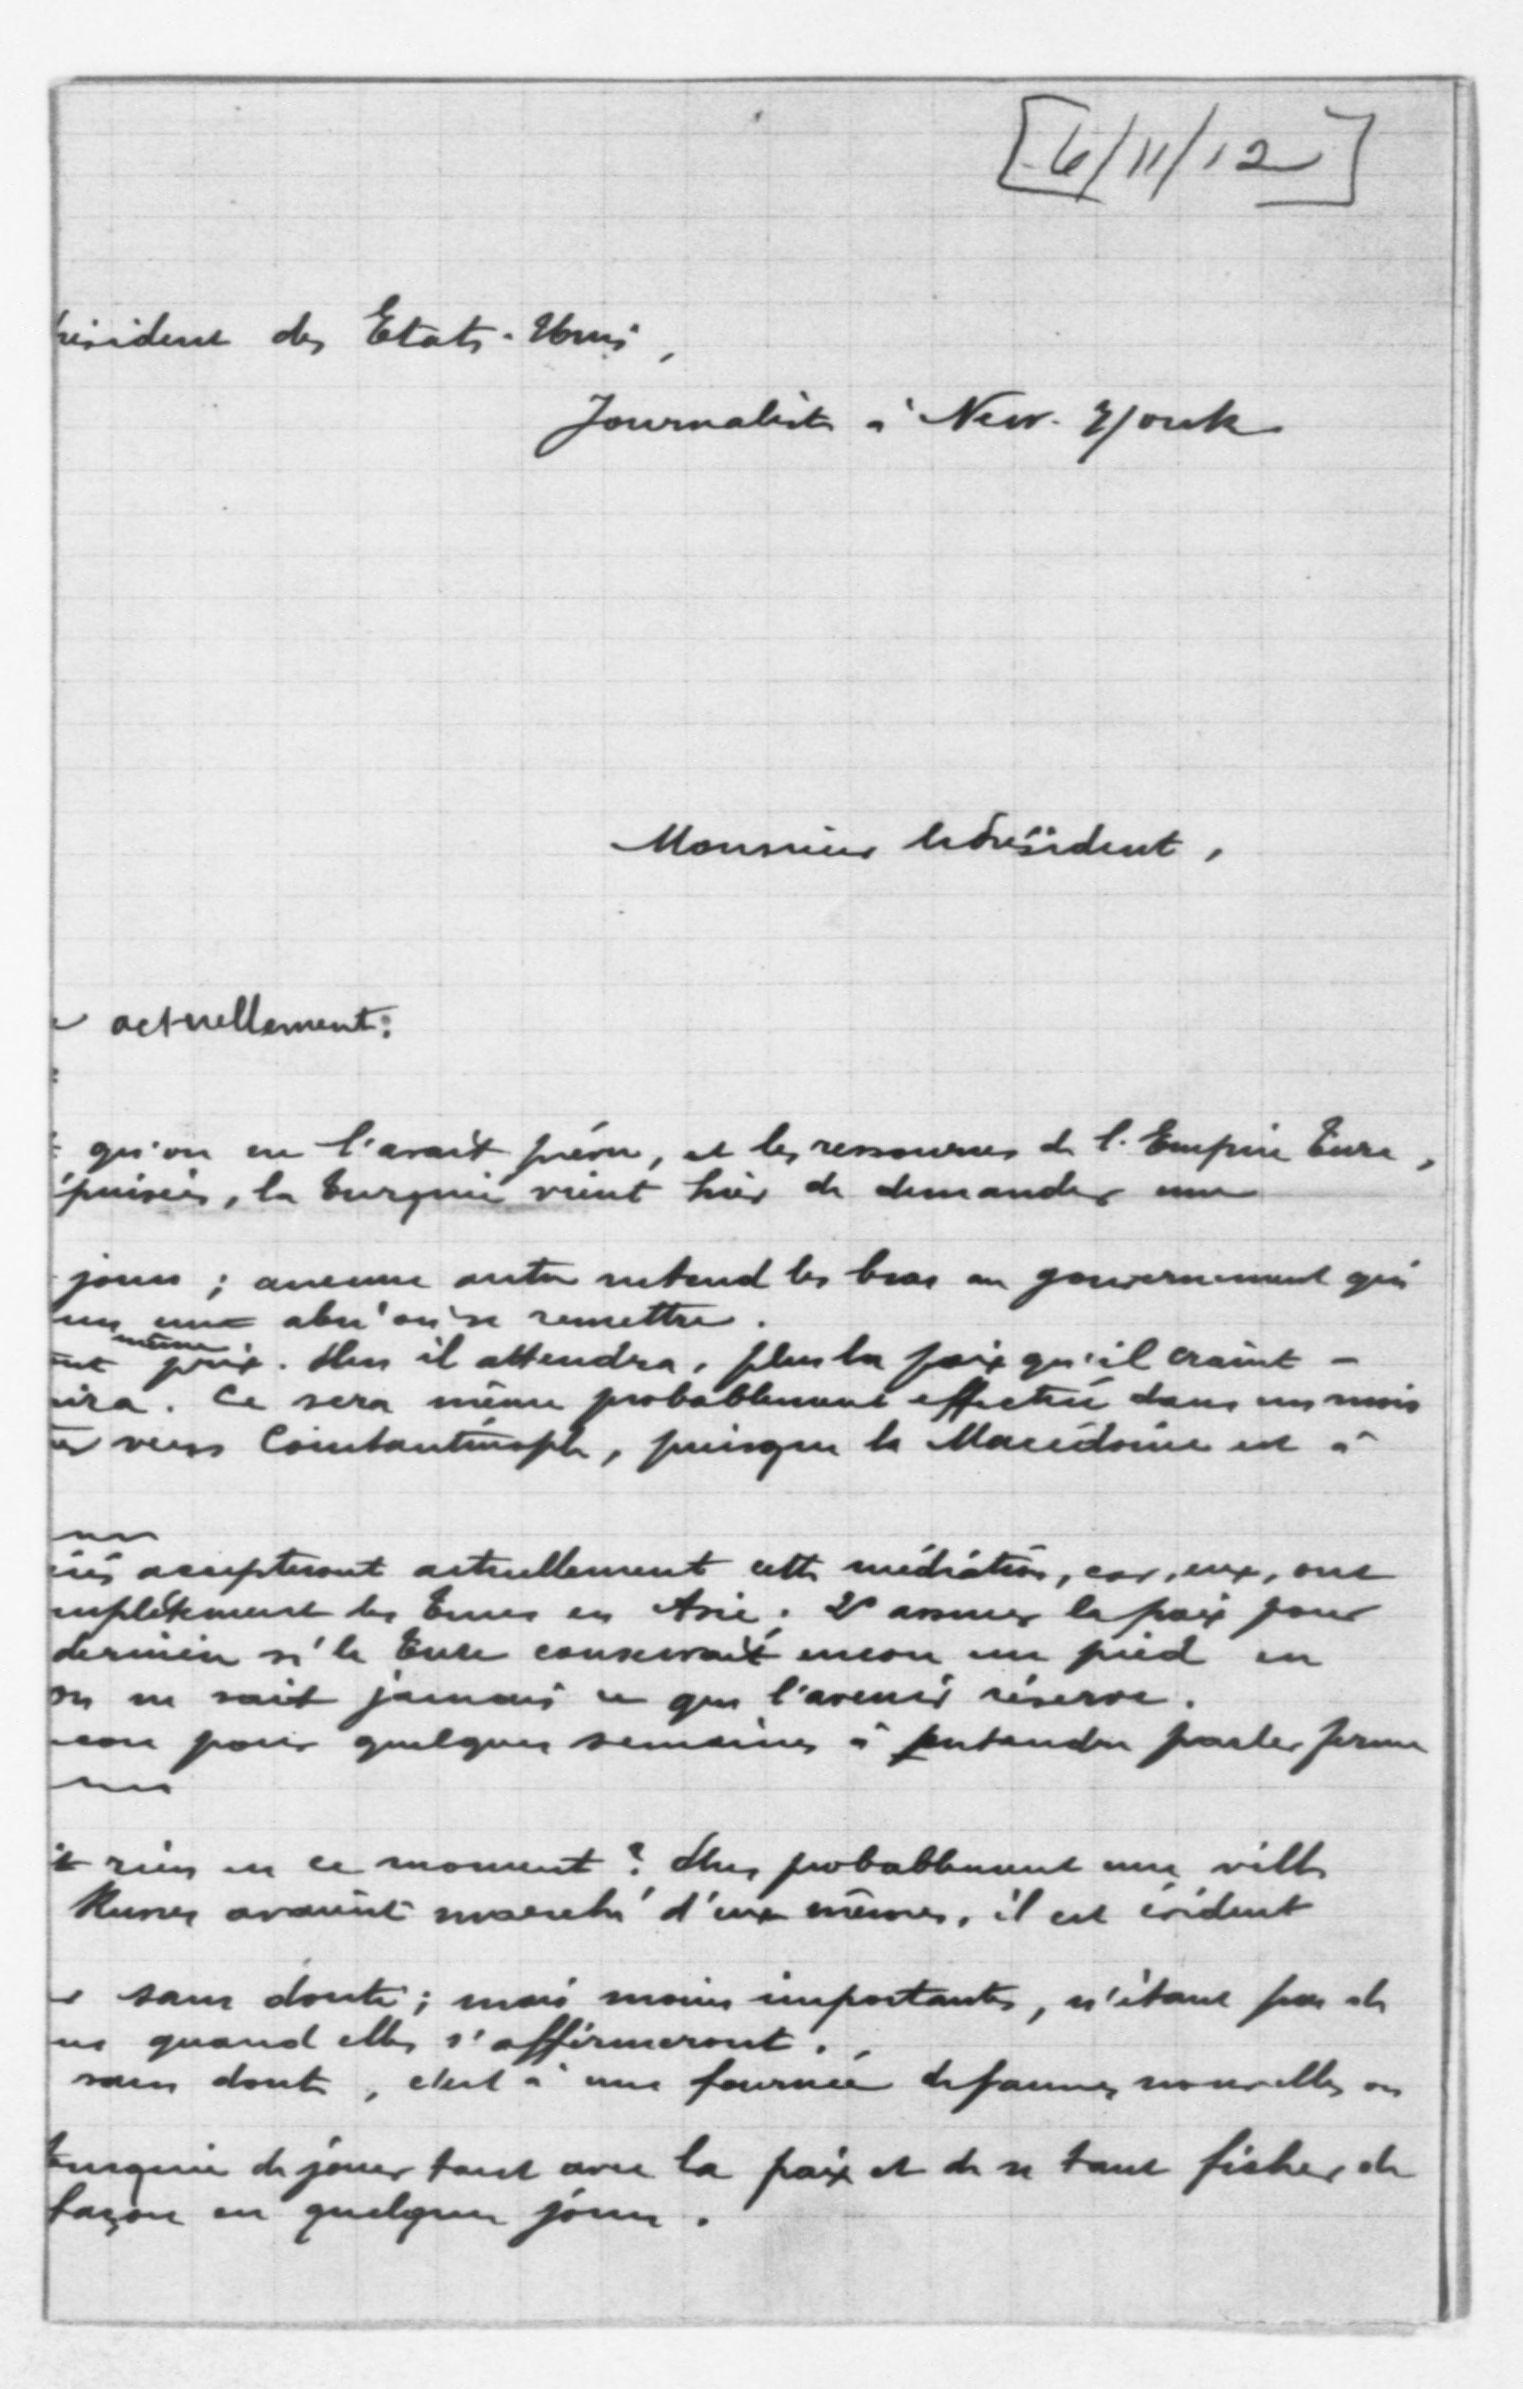 [6/11/12]
résident des Etats-Unis,
Journaliste à New-York
Monsieur le Président,
actuellement:
qu'on ne l'avait prévu, et les ressources de l'Empire Turc,
épuisées, la Turquie vient hier de demander une
jours; aucune autre ne tend les bras au gouvernement qui
une remettre.
même prix. Plus il attendra, plus la paix qu'il craint -
ira. Ce sera même probablement effectué dans un mois
vers Constantinople, puisque la Macédoine est à
accepteront actuellement cette médiation, car, eux, ont
complètement les Turcs en Asie; & assurer la paix pour
dernière si le Turc conservait encore un pied en
on ne sait jamais ce que l'avenir réserve.
pour quelques semaines à entendre parler ferme
rien en ce moment? Plus probablement une ville
Russes avaient marché d'eux mêmes, il est évident
sans doute; mais moins importantes, n'étant pas de
quand elles s'affirmeront.
sans doute, c'est à une fournée de fausses nouvelles ou
Turquie de jouer tant avec la paix et de se tant ficher de
façon en quelques jours.